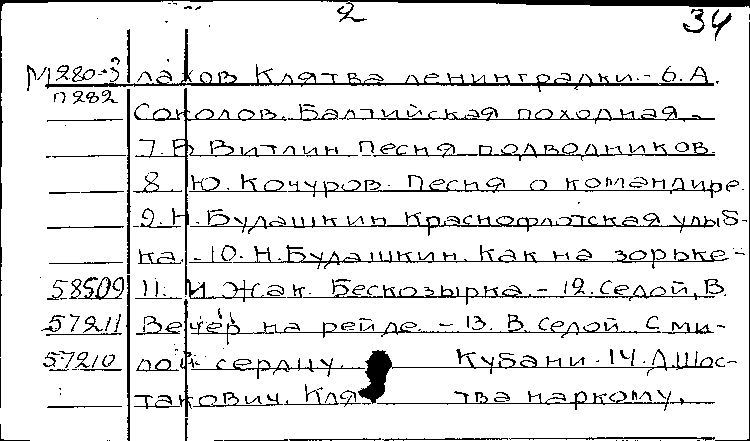 2 34
М280-3 лахов Клятва ленинградки.- 6. А.
п282 Соколов. Балтийская походная.-
7. В Витлин Песня подводников.
8. Ю. Кочуров. Песня о командире.
9. Н. Будашкин Краснофлотская улыб-
ка.-10. Н. Будашкин. Как на зорьке-
58509 11. И. Жак. Бескозырка.- 12. Седой, В.
57211 Вечер на рейде - 13. В. Седой С ми-
57210 лой сердцу Кубани. 14. Д. Шос-
такович. Кля тва наркому.